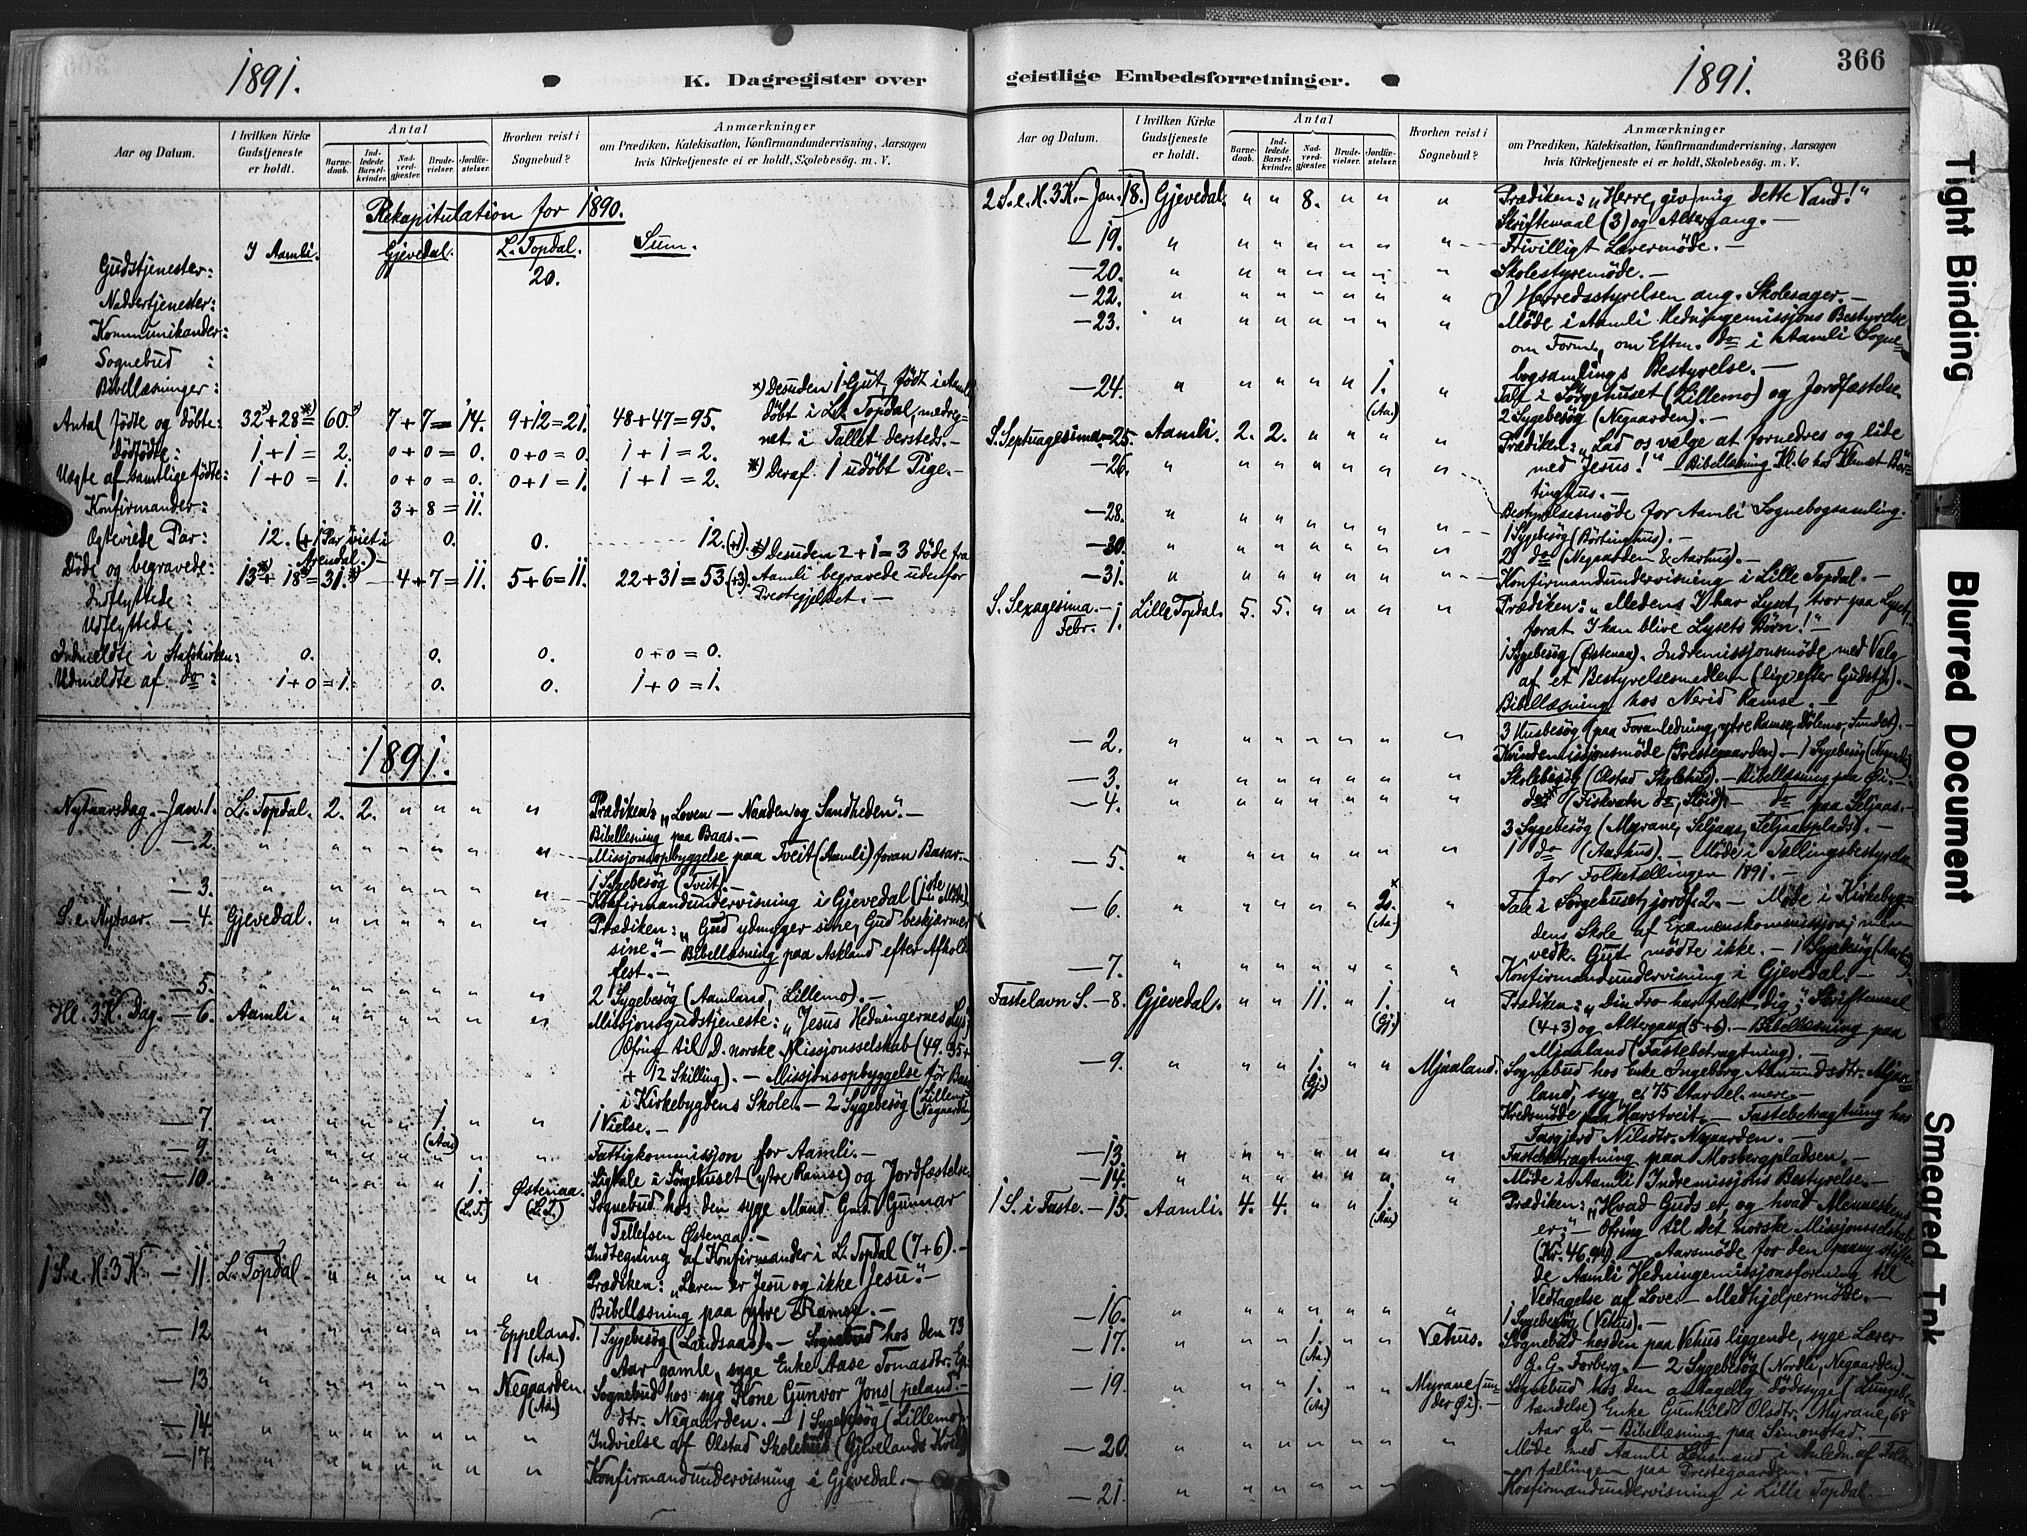 1891.
K. Dagregister over
Aar og Datum.
I hvilken Kirke Gudstjeneste er holdt.
Antal
Barne-daab.
Ind-ledede Barsel-kvinder.
Nad-verd-gjæster.
Brude-vielser.
Jordfæ-stelser.
Hvorhen reist i Sognebud?
Anmærkninger
om Prædiken, Katekisation, Konfirmandundervisning, Aarsagen
hvis Kirketjeneste ei er holdt, Skolebesøg. m. V.
Rekapitulation for 1890.
I Aamli. Gjevedal. L. Topdal. Sum.
Gudstjenester: 20.
Nadvertjenester:
Kommunikander:
Sognebud :
Bibellæsninger:
*) Desuden 1 Gut, født i Aamli
døbt i L. Topdal, medreg-
net i Tallet dersteds.-
Antal fødte og døbte: 32*)+28*)=60*) 7+7=14. 9+12=21. 48+47=95.
Dødfødte: 1+1=2. 0+0=0. 0+0=0. 1+1=2.
*) Deraf 1 udøbt Pige.-
Uægte af samtlige fødte: 1+0=1. 0+0=0. 0+1=1. 1+1=2.
Konfirmander: 3+8=11.
Ægteviede Par: 12. (+1 Par viet i Arendal.) 0. 0. 12. (+1)
*) Desuden 2+1=3 døde fra
Aamli begravede udenfor
Prestegjeldet.-
Døde og begravede: 13*)+18*)=31*) 4+7=11. 5+6=11. 22+31=53.(+3).
Indflyttede :
Udflyttede :
Indmeldte i Statskirken: 0. 0. 0. 0+0=0.
Udmeldte af do: 1+0=1. 0. 0. 1+0=1.
1891.
Nytaarsdag.-Jan. 1. L. Topdal. 2. 2. " " " " Prædiken: „Loven - Naaden og Sandheden".-
Bibellæsning paa Baas.-
-2. " " " " " " " Missjonsopbyggelse paa Tveit (Aamli) foran Basar.-
1 Sygebesøg (Tveit).-
-3. " " " " " " " Konfirmandundervisning i Gjevedal (1ste Møde).
S. e. Nytaar. -4. Gjevedal. " " " " " " Prædiken: „Gud ydmyger sine, Gud beskjærmer
sine".- Bibellæsning paa Askland efter Afholds
fest.-
-5. " " " " " " " 2 Sygebesøg (Aamland, Lillemo).-
Hl. 3 K. Dag. -6. Aamli. " " " " " " Missjonsgudstjeneste: „Jesus Hedningernes Lys",
Ofring til D. norske Missjonsselskab (49. 35+
+ 12 Skilling).- Missjonsopbyggelse før Basar
i Kirkebygdens Skole.- 2 Sygebesøg (Lillemo, Negaarden)
-7. " " " " 1. (Aa.) " " 1 Vielse.-
-9. " " " " " " " Fattigkommissjon for Aamli.-
-10. " " " " " 1. (L.T.) Østenaa. (L.T.) Ligtale i Sørgehuset (ytre Ramse) og Jordfæstelse.
Sognebud hos den syge Mand Gmd. Gunnar
Tellefsen Østenaa.-
Indtegning af Konfirmander i L. Topdal (7+6).-
1 S. e. H. 3 K. -11. L. Topdal " " " " " " Prædiken: „Læren er Jesu og ikke Jesu".-
Bibellæsning paa ytre Ramse.-
-12. " " " " " " Eppeland. (Aa.) 1 Sygebesøg (Landsaas).- Sognebud hos den 73
Aar gamle, syge Enke Aase Tomasdtr. Ep-
peland.-
-13. " " " " " " Negaarden. (Aa.) Sognebud hos syg Kone Gunvor Jons-
dtr. Negaarden.- 1 Sygebesøg (Lillemo).-
-14. " " " " " " " Indvielse af Olstad Skolehus (Gjevelands Kreds)
-17. " " " " " " " Konfirmandundervisning i Gjevedal.-
geistlige Embedsforretninger.
1891.
366
Aar og Datum.
I hvilken Kirke Gudstjeneste er holdt.
Antal
Barne-daab.
Ind-ledede Barsel-kvinder.
Nad-verd-gjæster.
Brude-vielser.
Jordfæ-stelser.
Hvorhen reist i Sognebud?
Anmærkninger
om Prædiken, Katekisation, Konfirmandundervisning, Aarsagen
hvis Kirketjeneste ei er holdt, Skolebesøg. m. V.
2 S. e. H. 3 K.-Jan. 18. Gjevedal. " " 8. " " " Prædiken: „Herre, giv mig dette Vand!"
Skriftemaal (3) og Altergang.
-19. " " " " " " " Frivilligt Lærermøde.-
-20. " " " " " " " Skolestyremøde.-
-22. " " " " " " " I Herredsstyrelsen ang. Skolesager.-
-23. " " " " " " " Møde i Aamli Hedningemissjons Bestyrelse
om Form., om Efterm. do i Aamli Sogne-
bogsamlings Bestyrelse.-
-24. " " " " " 1. (Aa.) " Tale i Sørgehuset (Lillemo) og Jordfæstelse.
2 Sygebesøg (Negaarden).-
S. Septuagesima.-25. Aamli. 2. 2. " " " " Prædiken: „Lad os vælge at fornedres og lide
med Jesus!" - Bibellæsning Kl. 6 hos Klemet Bør-
tinghus.-
-26. " " " " " " "
-28. " " " " " " " Bestyrelsesmøde for Aamli Sognebogsamling.
1 Sygebesøg (Børtinghus).-
-30. " " " " " " " 2 do (Negaarden & Aarhus).-
-31. " " " " " " " Konfirmandundervisning i Lille Topdal.-
S. Sexagesima.- Febr. 1. Lille Topdal. 5. 5. " " " " Prædiken: „Medens I har Lyset, tror paa Lyset,
forat I kan blive Lysets Børn!"-
1 Sygebesøg (Østenaa). Indremissjonsmøde med Valg
af et Bestyrelsesmedlem (lige efter Gudstj.).-
Bibellæsning hos Nerid Ramse.-
-2. " " " " " " " 3 Husbesøg (paa Foranledning, ytre Ramse, Dølemo, Sundet).-
Kvindemissjonsmøde (Prestegaarden)- 1 Sygebesøg (Negaarden)
-3. " " " " " " " Skolebesøg (Olstad Skolehus).- Bibellæsning paa Øi.-
-4. " " " " " " " do (Fiskvatn do, Sløid).- do paa Seljaas.-
3 Sygebesøg (Myrane, Seljaas, Seljaasplads).-
-5. " " " " " " " 1 do (Aarhus).- Møde i Tællingsbestyrelse
for Folketællingen 1891.-
-6. " " " " " 2.* (Aa.) " Tale i Sørgehuset, jordf. 2.- Møde i Kirkebyg-
dens Skole af Examenskommissjon;
vedk. Gut mødte ikke.- 1 Sygebesøg (Aarhus).
-7. " " " " " " " Konfirmandundervisning i Gjevedal.-
Fastelavn S. -8. Gjevedal. " " 11. " 1. (Gj.) " Prædiken: „Din Tro har frelst dig"; Skriftemaal
(4+3) og Altergang (5+6).- Bibellæsning paa
Mjaaland (Fastebetragtning).-
-9. " " " 1. (Gj.) " " Mjaaland. Sognebud hos Enke Ingeborg Aamundsdtr. Mjaa-
land, syg, c. 75 Aar el. mere.-
Kredsmøde paa Harstveit.- Fastebetragtning hos
Targjerd Nilsdtr. Negaarden.-
-13. " " " " " " " Fastebetragtning paa Mosbergpladsen.-
-14. " " " " " " " Møde i Aamli Indremissjons Bestyrelse.-
1 S. i Faste.-15. Aamli. 4. 4. " " 1. (Aa.) " Prædiken: „Hvad Guds er, og hvad Menneskens
er;"- Ofring til det norske Missjonsselskab
(Kr. 46,94).- Aarsmøde for den paany stifte-
de Aamli Hedningemissjonsforening til
Vedtagelse af Love.- Medhjelpermøde.-
-16. " " " " " " " 1 Sygebesøg (Vehus).-
-17. " " " 1. (Aa.) " " Vehus. Sognebud hos den paa Vehus liggende, syge Lærer
G. G. Forberg.- 2 Sygebesøg (Nordli, Negaarden).-
-19. " " " 1. (Aa.) " " Myrane (un-der Øi). Sognebud hos den antagelig dødssyge (Lungebe-
tændelse) Enke Gunhild Olsdtr. Myrane, 68
Aar gl.- Bibellæsning paa Simonstad.-
-20. " " " " " " " Møde med Aamli Lensmand i Anledn. af Folke-
tællingen paa Prestegaarden.
-21. " " " " " " " Konfirmandundervisning i Lille Topdal.-
Tight Binding
Blurred Document
Smeared Ink